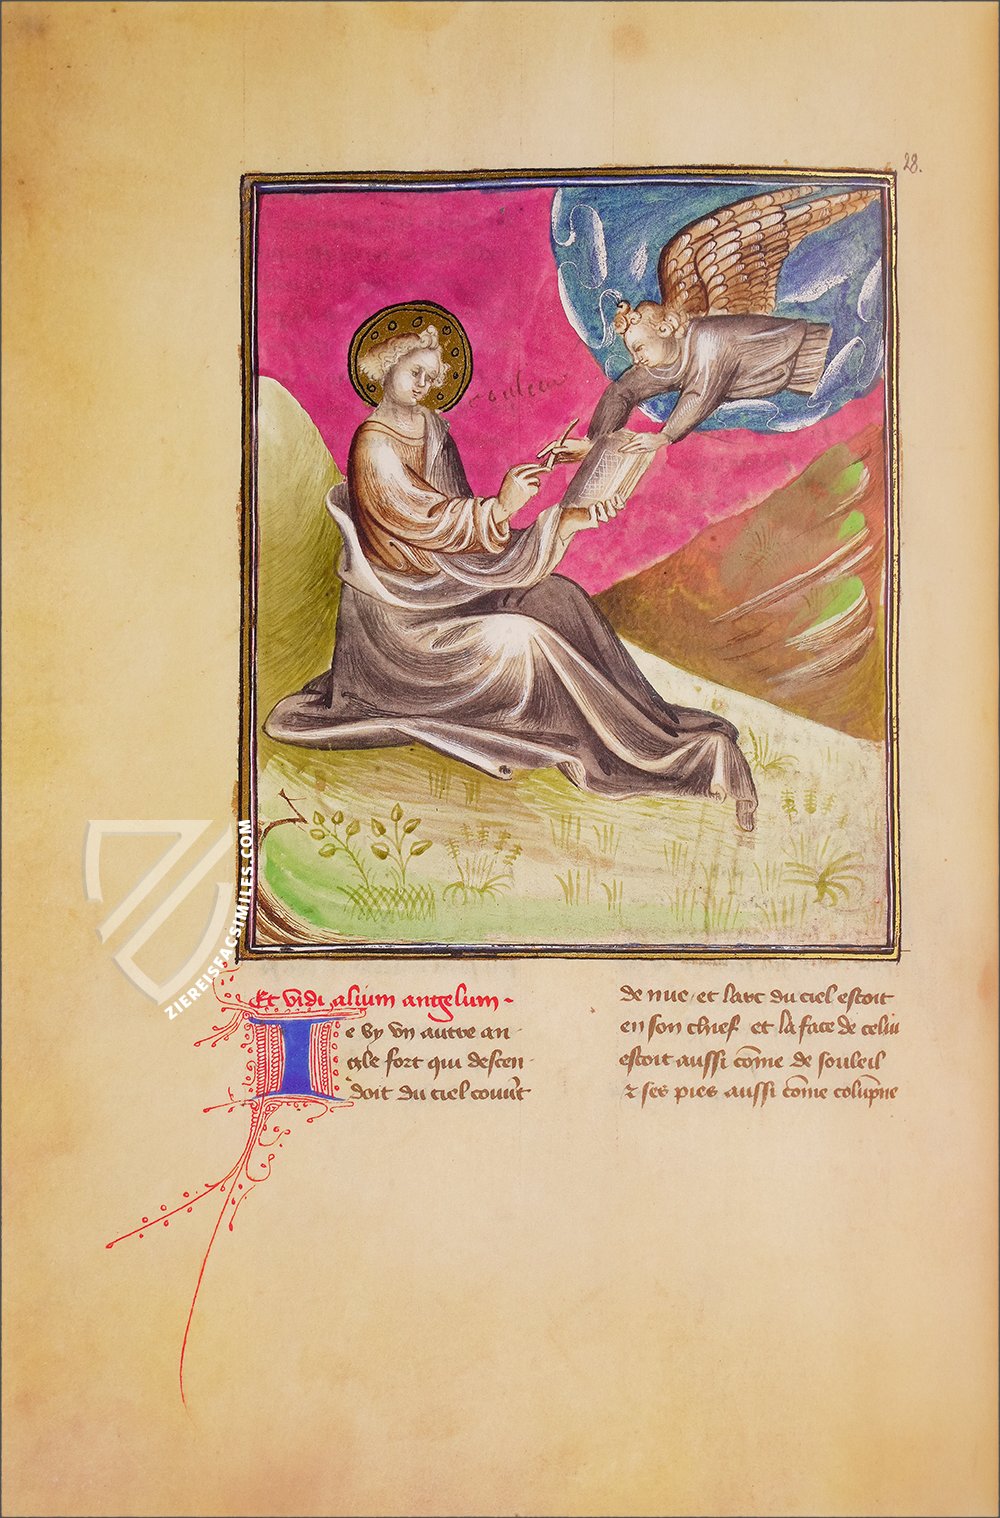 28.
couleur
Et vidi alium angelum ·
Ie vy vn autre an
gle fort qui descen
doit du ciel couu̾t
de nue · et larc du ciel estoit
en son chief et la face de celui
estoit aussi cōme de souleil
⁊ ses pies aussi cōme colūpne
ZIEREISFACSIMILES.COM